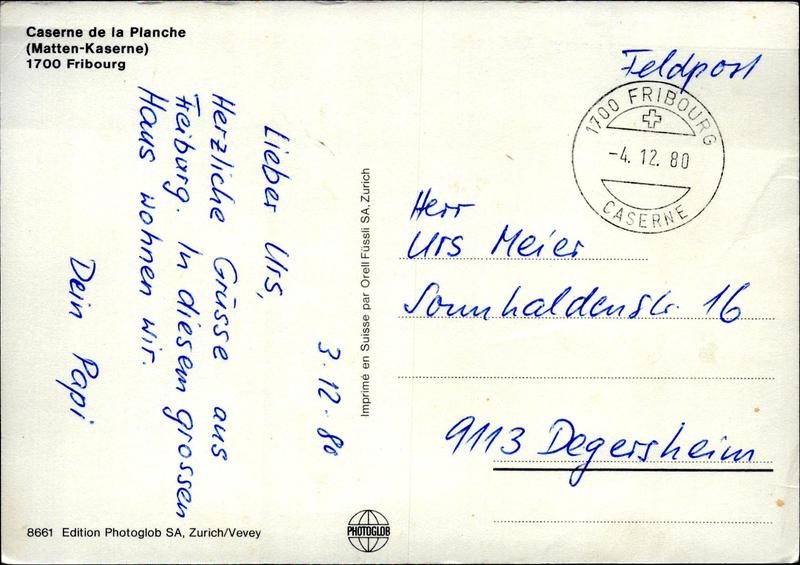 Caserne de la Planche
(Matten-Kaserne)
1700 Fribourg
3.12.80
Lieber Urs,
Herzliche Grüsse aus
Freiburg. In diesem grossen
Haus wohnen wir.
Dein Papi
8661 Edition Photoglob SA, Zurich/Vevey
Imprimé en Suisse par Orell Füssli SA, Zurich
PHOTOGLOB
Feldpost
1700 FRIBOURG
-4.12.80
CASERNE
Herr
Urs Meier
Sonnhaldenstr. 16
9113 Degersheim